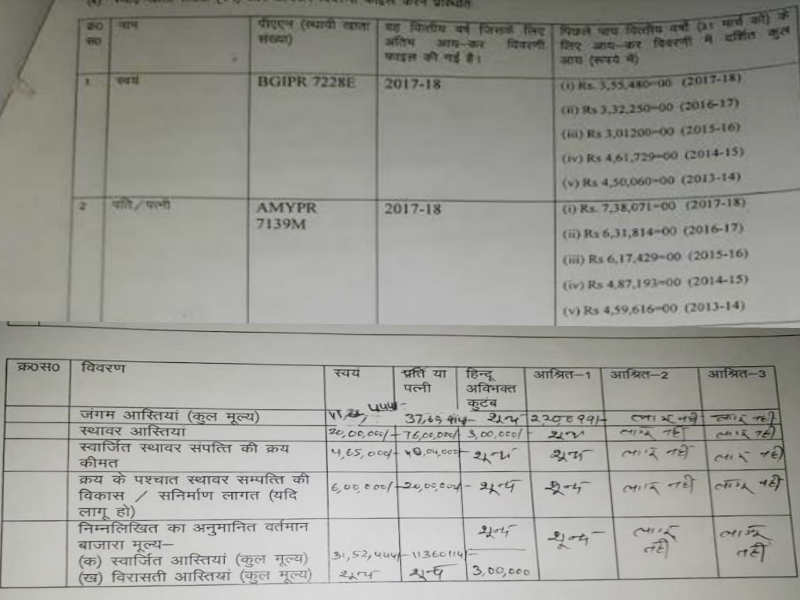 क्र० नाम पीएएन (स्थायी खाता वह वित्तीय वर्ष जिसके लिए पिछले पांच वित्तीय वर्षों (31 मार्च को) के
स० संख्या) अंतिम आय-कर विवरणी लिए आय-कर विवरणी में दर्शित कुल
फाइल की गई है। आय (रूपये में)
1 स्वयं BGIPR 7228E 2017-18 (i) Rs. 3,55,480=00 (2017-18)
(ii) Rs 3,32,250=00 (2016-17)
(iii) Rs 3,01200=00 (2015-16)
(iv) Rs 4,61,729=00 (2014-15)
(v) Rs 4,50,060=00 (2013-14)
2 पति/पत्नी AMYPR 2017-18 (i) Rs. 7,38,071=00 (2017-18)
7139M (ii) Rs 6,31,814=00 (2016-17)
(iii) Rs 6,17,429=00 (2015-16)
(iv) Rs 4,87,193=00 (2014-15)
(v) Rs 4,59,616=00 (2013-14)
क्र०स० विवरण स्वयं पति या हिन्दू आश्रित-1 आश्रित-2 आश्रित-3
पत्नी अविभक्त
कुटंब
जंगम आस्तियां (कुल मूल्य) शून्य लागू नहीं लागू नहीं
स्थावर आस्तियां 20,00,000/- 76,00,000/- 3,00,000/- शून्य लागू नहीं लागू नहीं
स्वार्जित स्थावर संपत्ति की क्रय 4,65,000/- शून्य शून्य लागू नहीं लागू नहीं
कीमत
क्रय के पश्चात स्थावर सम्पत्ति की 6,00,000/- 20,00,000/- शून्य शून्य लागू नहीं लागू नहीं
विकास / सनिर्माण लागत (यदि
लागू हो)
निम्नलिखित का अनुमानित वर्तमान शून्य शून्य लागू नहीं लागू नहीं
बाजारा मूल्य–
(क) स्वार्जित आस्तियां (कुल मूल्य) 31,52,444/- 11360114/-
(ख) विरासती आस्तियां (कुल मूल्य) शून्य शून्य 3,00,000